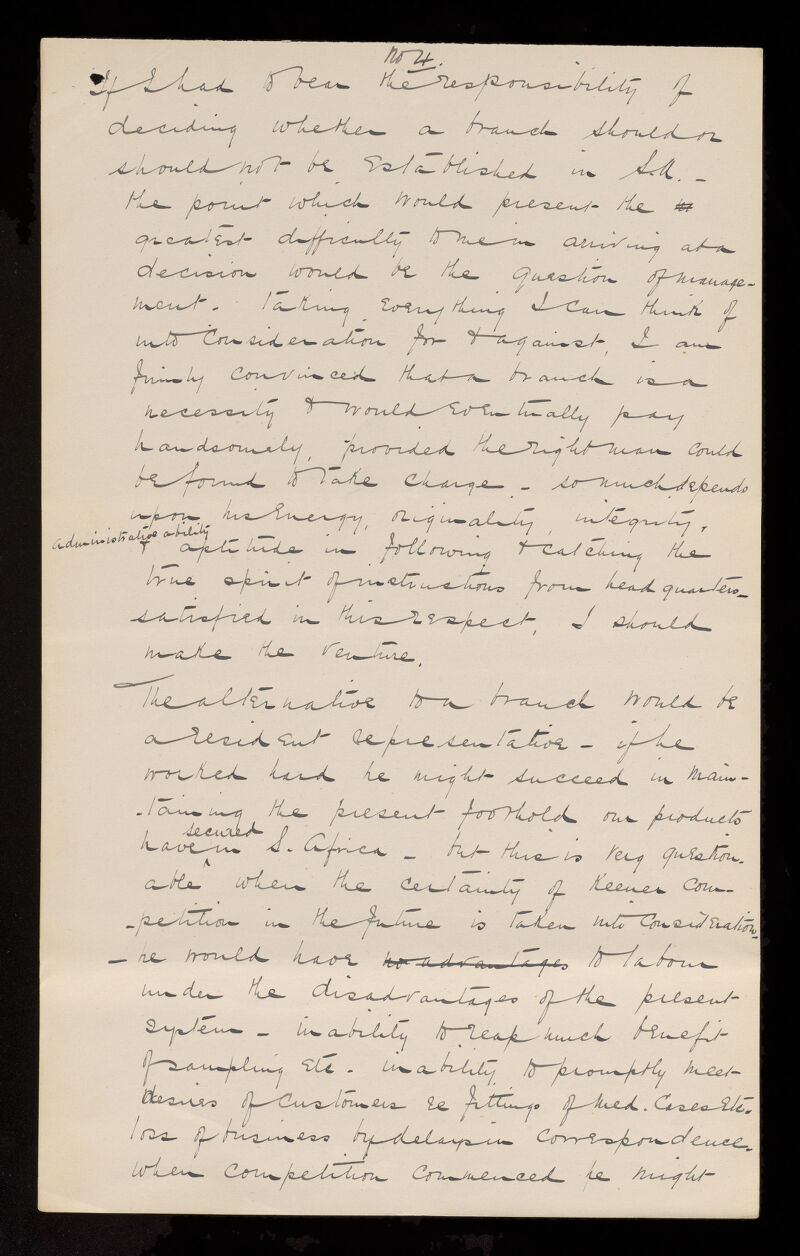 No 4.
If I had to bear the responsibility of
deciding whether a branch should or
should not be established in S.A. -
the point which would present the
greatest difficulty to me in arriving at a
decision would be the question of manage-
ment. Taking everything I can think of
into consideration for & against, I am
firmly convinced that a branch is a
necessity & would eventually pay
handsomely, provided the right man could
be found to take charge - so much depends
upon his energy, originality, integrity,
administrative ability
& aptitude in following & catching the
true spirit of instructions from head quarters -
satisfied in this respect, I should
make the venture.
The alternative to a branch would be
a resident representative - if he
worked hard he might succeed in main-
-taining the present foothold our products
secured
have in S. Africa - but this is very question-
able when the certainty of keener com-
-petition in the future is taken into consideration -
- he would have no advantages to labour
under the disadvantages of the present
system - inability to reap much benefit
of sampling etc - inability to promptly meet
desires of customers re fittings of Med. Cases etc.
loss of business by delays in correspondence -
when competition commenced he might